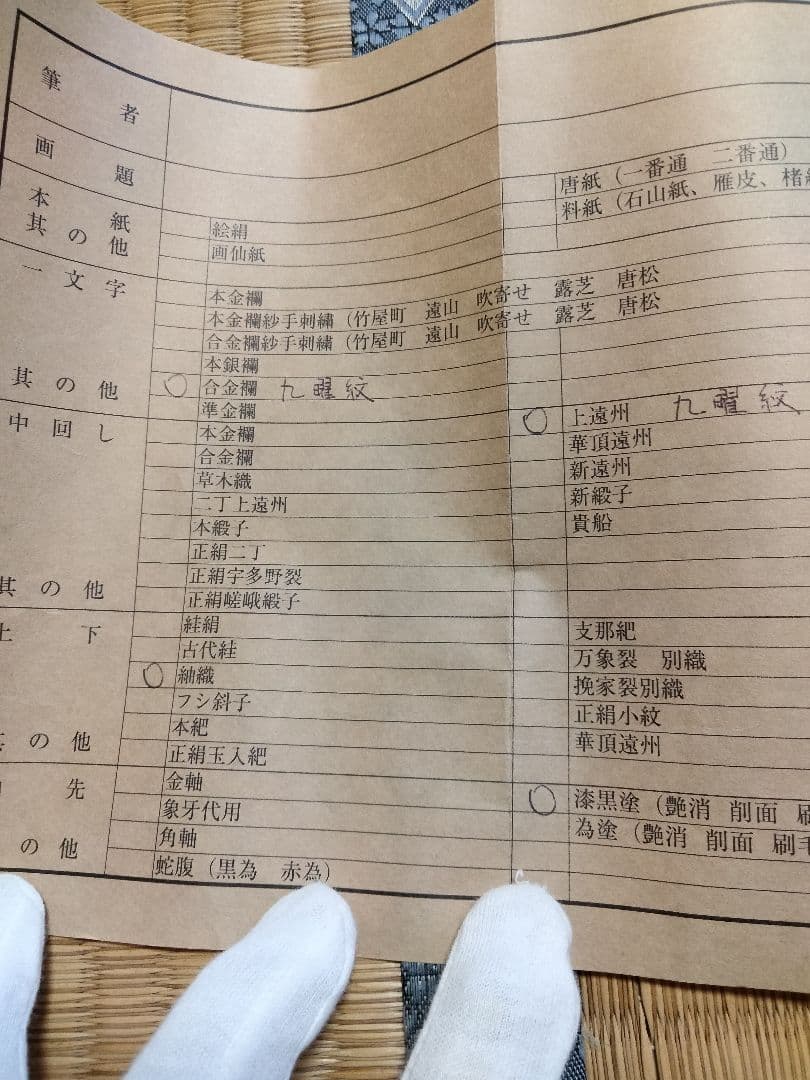 筆者
画題
本紙
其の他
絵絹
画仙紙
唐紙（一番通　二番通）
料紙（石山紙、雁皮、楮
一文字
其の他
本金襴
本金襴紗手刺繍（竹屋町　遠山　吹寄せ　露芝　唐松
合金襴紗手刺繍（竹屋町　遠山　吹寄せ　露芝　唐松
本銀襴
○ 合金襴　九曜紋
準金襴
中回し
其の他
本金襴
合金襴
草木織
二丁上遠州
本緞子
正絹二丁
正絹宇多野裂
正絹嵯峨緞子
○ 上遠州　九曜紋
華頂遠州
新遠州
新緞子
貴船
上下
其の他
絓絹
古代絓
○ 紬織
フシ斜子
本絁
正絹玉入絁
支那絁
万象裂　別織
挽家裂別織
正絹小紋
華頂遠州
先
の他
金軸
象牙代用
角軸
蛇腹（黒為　赤為）
○ 漆黒塗（艶消　削面　刷
為塗（艶消　削面　刷毛